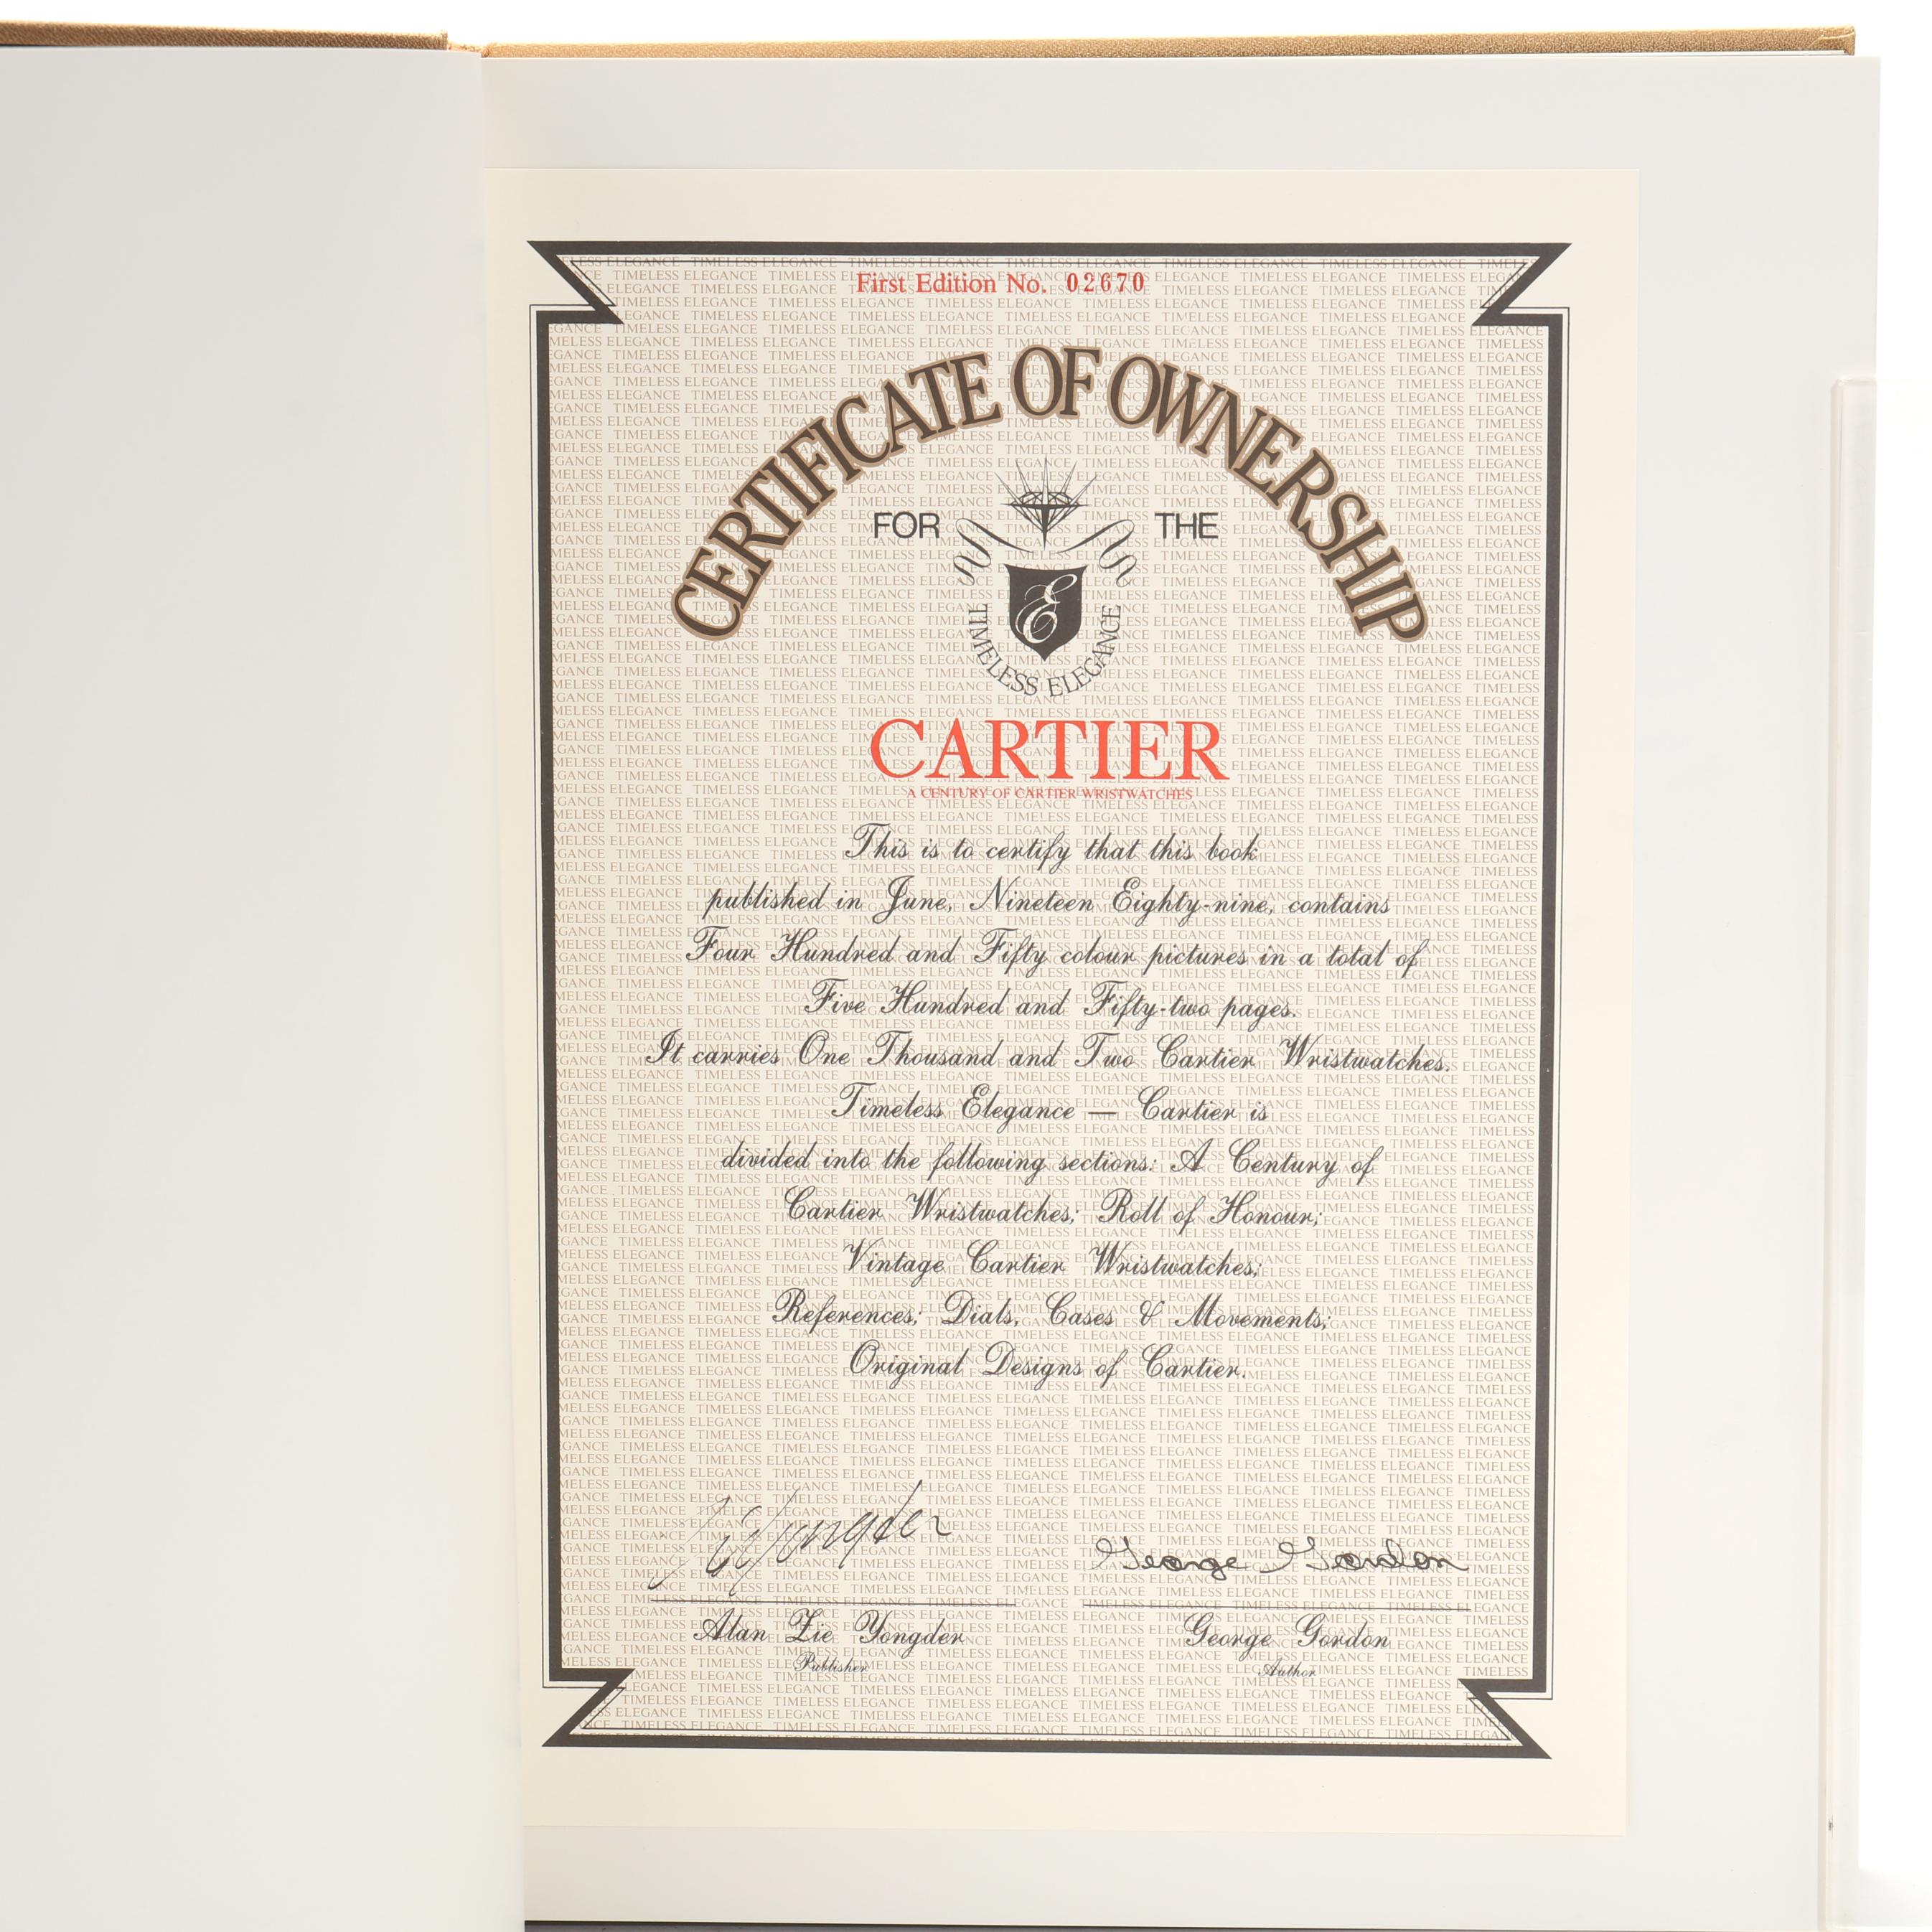 First Edition No. 02670
CERTIFICATE OF OWNERSHIP
FOR THE
E
TIMELESS ELEGANCE
CARTIER
A CENTURY OF CARTIER WRISTWATCHES
This is to certify that this book
published in June, Nineteen Eighty-nine, contains
Four Hundred and Fifty colour pictures in a total of
Five Hundred and Fifty-two pages.
It carries One Thousand and Two Cartier Wristwatches.
Timeless Elegance — Cartier is
divided into the following sections: A Century of
Cartier Wristwatches; Roll of Honour;
Vintage Cartier Wristwatches;
References; Dials, Cases & Movements;
Original Designs of Cartier.
George Gordon
Alan Zie Yongder George Gordon
Publisher Author